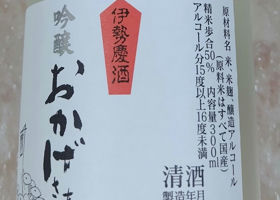 原材料名 米、米麹、醸造アルコール
(原料米はすべて国産)
精米歩合50% 内容量300ml
アルコール分15度以上16度未満
清酒
製造年月
伊勢慶酒
吟醸
おかげさま